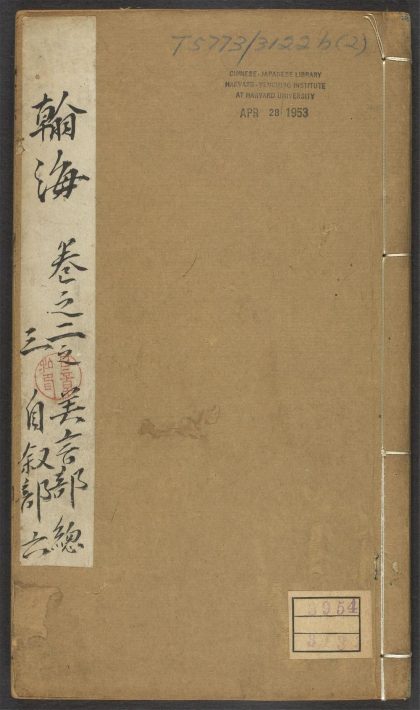 T5773/3122b(2)
CHINESE-JAPANESE LIBRARY
HARVARD-YENCHING INSTITUTE
AT HARVARD UNIVERSITY
APR 28 1953
翰海
卷之二之美言部 總
三 自叙部 六
3954